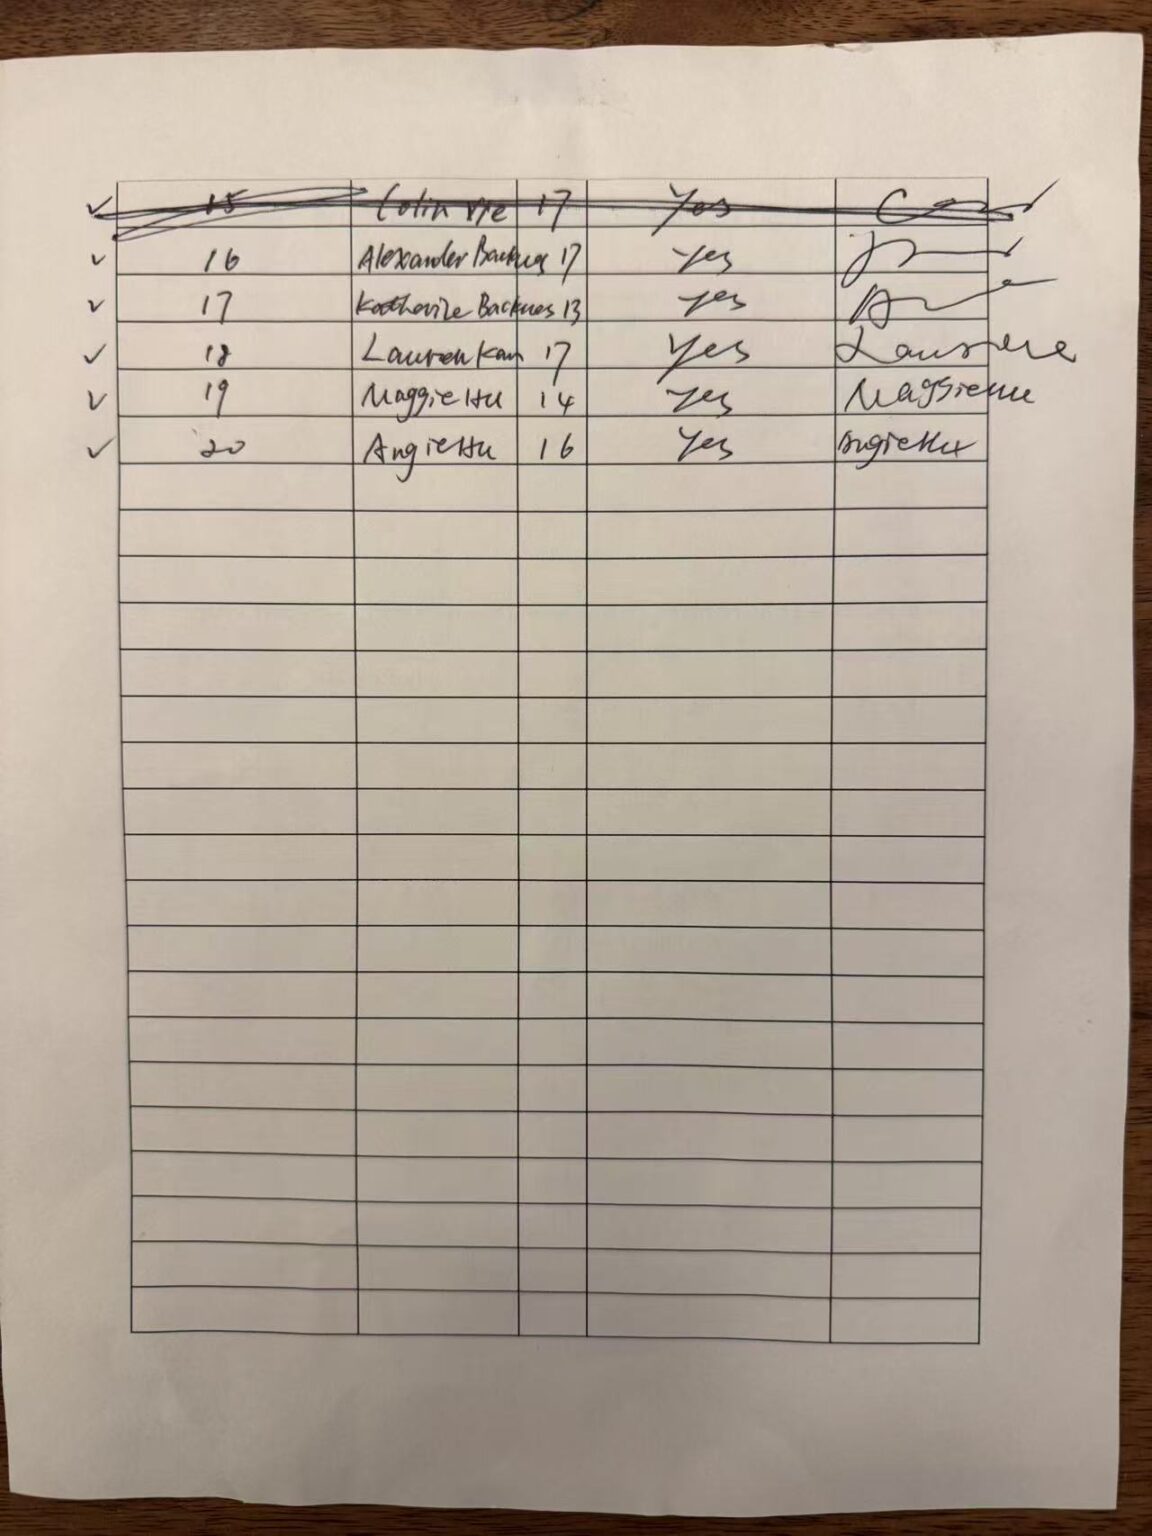 15 Colin 17 Yes
16 Alexander Backues 17 Yes
17 Katharine Backues 13 Yes
18 Lauren Kan 17 Yes
19 Maggie Hu 14 Yes Maggie Hu
20 Angie Hu 16 Yes Angie Hu